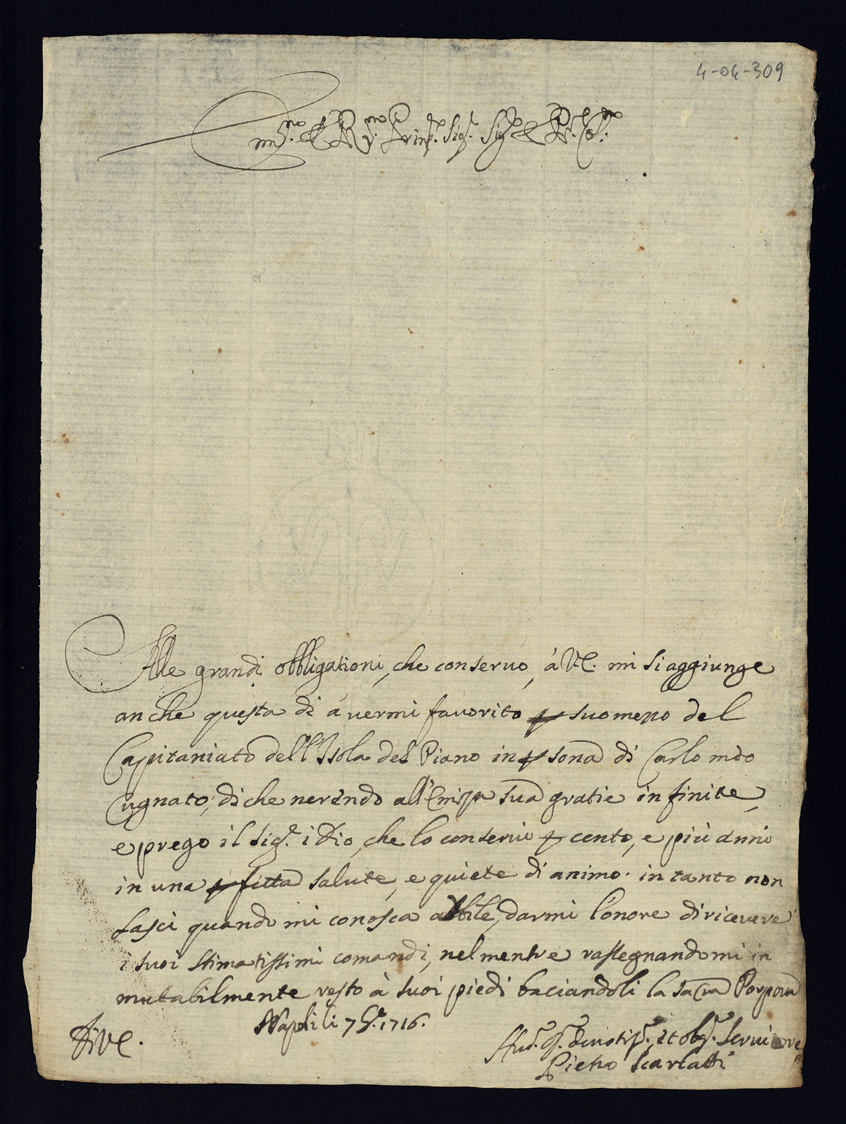 4-04-309
Em.mo et R.mo Prin.pe Sig.r Sig.r et P.ron Col.mo
Alle grandi obbligationi, che conservo, á VE. mi si aggiunge
anche questa di ávermi favorito per suo mezo del
Capitaniato dell'Isola del Piano in persona di Carlo mio
Cugnato; di che ne rendo all'Em.za sua gratie infinite,
e prego il Sig.r iDio, che lo conservi per cento, e più anni
in una perfitta salute, e quiete di animo. in tanto non
lasci quando mi conosca abbile, darmi l'onore di ricevere
i suoi stimatissimi comandi, nel mentre rassegnandomi in
mutabilmente resto à suoi piedi baciandoli la sacra Porpora
Napoli li 7 1716.
Di VE.
Hu.mo devotis.mo et obg.mo Servitore
Pietro Scarlatti